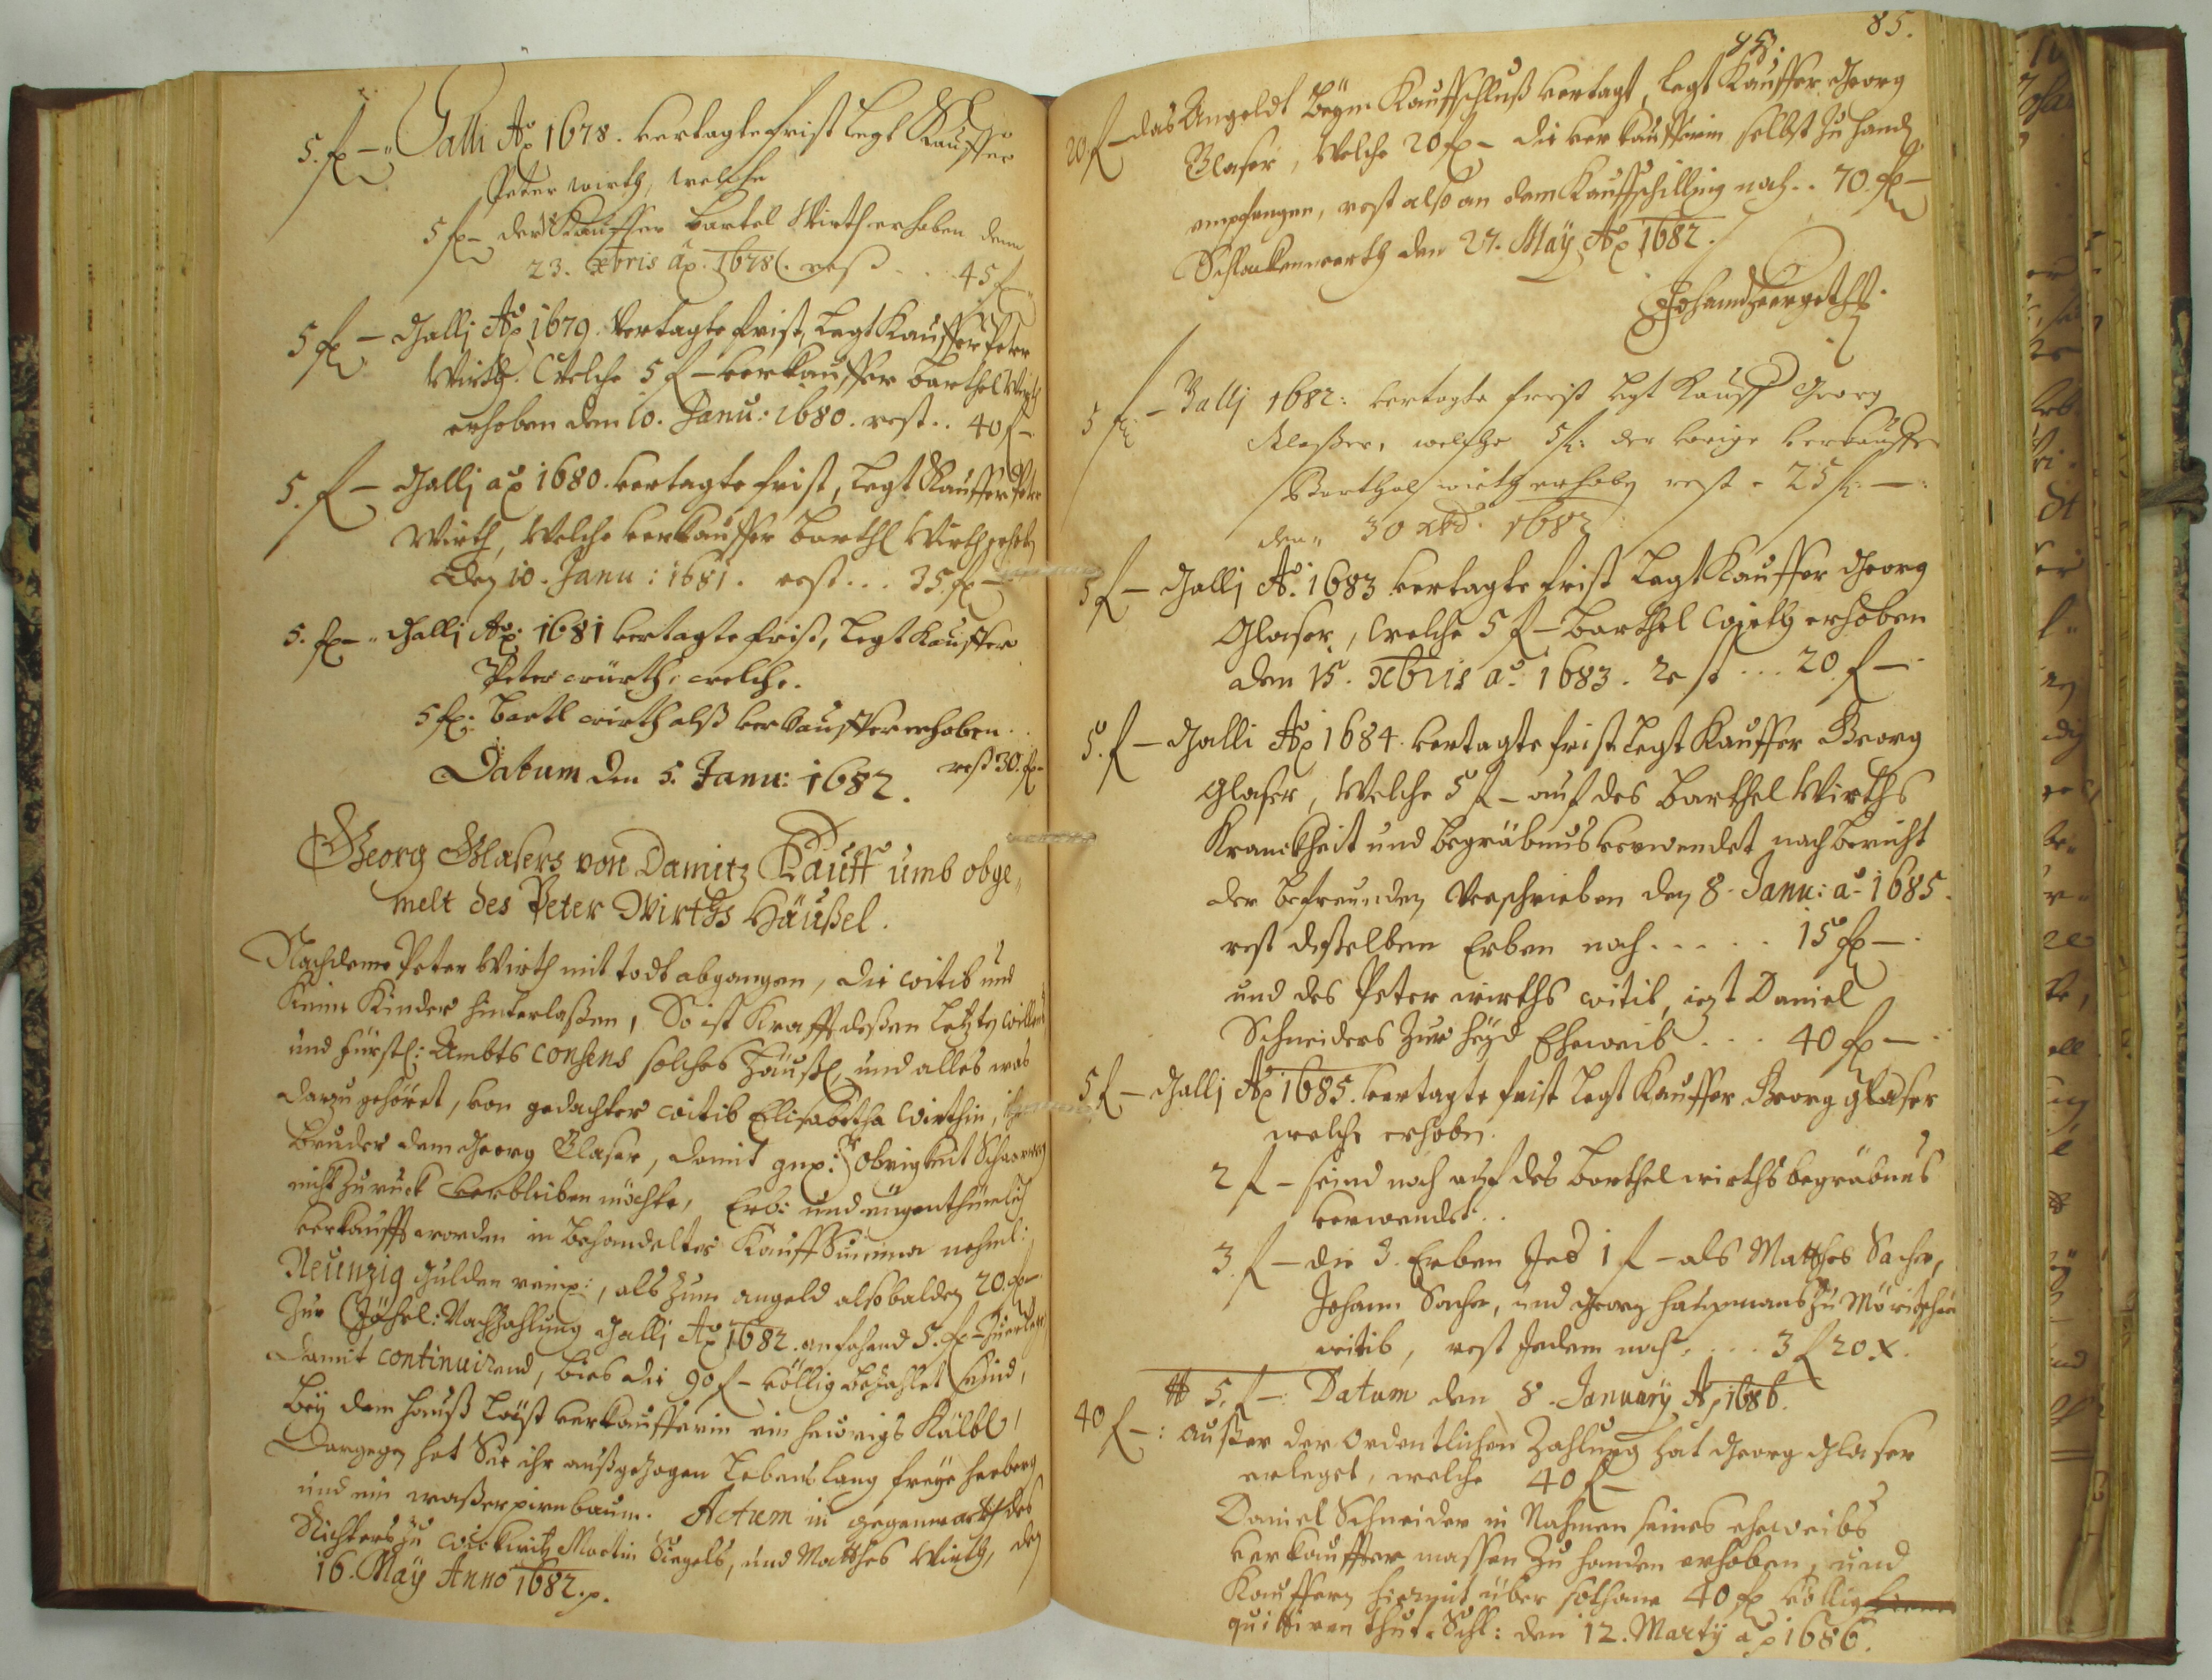 5. f — Galli Ao 1678. vertagte frist legt Kauffer
Peter Wirth, welche
5 f — der Verkauffer Bartel Wirth erhoben den
23. xbris ao. 1678. rest . . . 45 f
5 f — Gallj Ao 1679. Vertagte frist, legt Kauffer Peter
Wirth. Welche 5 f — verkauffer Barthel Wirth
erhoben den 10. Janu: 1680. rest . . 40 f —
5. f — Gallj ao 1680. vertagte frist, legt Kauffer Peter
Wirth, Welche verkauffer Barthl Wirth
den 10. Janu: 1681. rest . . . 35. f —
5. f — Gallj Ao: 1681 vertagte frist, legt Kauffer
Peter würth, welche.
5 f: Bartl wirth alß verkauffer erhoben.
rest 30. f —
Datum den 5. Janu: 1682.
Georg Glasers von Damitz Kauff umb obge,,
melt des Peter Wirths Häußel.
Nachdeme Peter Wirth mit todt abgangen, die witib und
keine Kinder hinterlaßen, So ist Krafft deßen letzten willens
und fürstl: Ambts consens solches Häußl, und alles was
darzu gehöret, von gedachter witib Elisabetha Wirthin, ihr
bruder dem Georg Glaser, damit Obrigkeit
nicht zuruck verbleiben möchte, Erb: und eigenthümlich
verkaufft worden in behandelter Kauff Summa nehml:
Neunzig gulden reinp:, als zum angeld alsobalden 20. f —
Zur Jährl: Nachzahlung Gallj Ao 1682. anfahend 5. f —
damit continuirend, bies die 90 f — völlig bezahlet seind,
bey dem hauß läst verkaufferin ein heuriges Kälbl,
Dargegen hat Sie ihr außgezogen lebenslang freye herberg
und ein waßerpirnbaum. Actum in gegenwarth des
Richters zu Martin Siegels, und Matthes Wirth, den
16. May Anno 1682. p.
85.
20 f — das Angeldt beym Kauffschluß vertagt, legt Kauffer Georg
Glaser, Welche 20 f — die verkaufferin selbst zu handen
empfangen, rest also an dem Kauffschilling noch . . 70. f —
Schlackenwerth den 27. May Ao 1682.
5 f — Gallj 1682: vertagte frist legt Kauff Georg
Glaßer, welche 5 f: der vorige verkauffer
Barthel wirth erhoben rest . 25 f: —
den 30 xbr. 1682
5 f — Gallj Ao. 1683 vertagte frist legt Kauffer Georg
Glaser, Welche 5 f — Barthel Wirth erhoben
den 15. xbris ao. 1683. rest . . . 20. f —
5. f — Galli Ao 1684. vertagte frist legt Kauffer Georg
Glaser, Welche 5 f — auf des Barthel Wirths
Kranckheit und begräbnus verwendet nach bericht
der befreunden Verschrieben den 8. Janu: ao. 1685.
rest deßelben Erben noch . . . . . 15 f —
und des Peter wirths witib, iezt Daniel
Schneiders zur heyd Eheweib . . . 40 f —
5 f — Gallj Ao 1685. vertagte frist legt Kauffer Georg Glaser
welche erhoben.
2 f — seind noch auf des Barthel wirths begräbnus
verwendet . .
3. f — die 3. Erben Jed 1 f — als Matthes Sacher,
Johann Sacher, und Georg
witib, rest Jedem noch . . . . 3 f 20 x.
5. f —: Datum den 8. January Ao 1686.
40 f —: außer der Ordentlichen Zahlung hat Georg Glaser
erleget, welche 40 f —
Daniel Schneider in Nahmen seines eheweibs
verkauffter massen zu handen erhoben, und
Kauffern hiermit über solthane 40 f völlig
quittiren thut. Schl: den 12. Marty ao 1686.